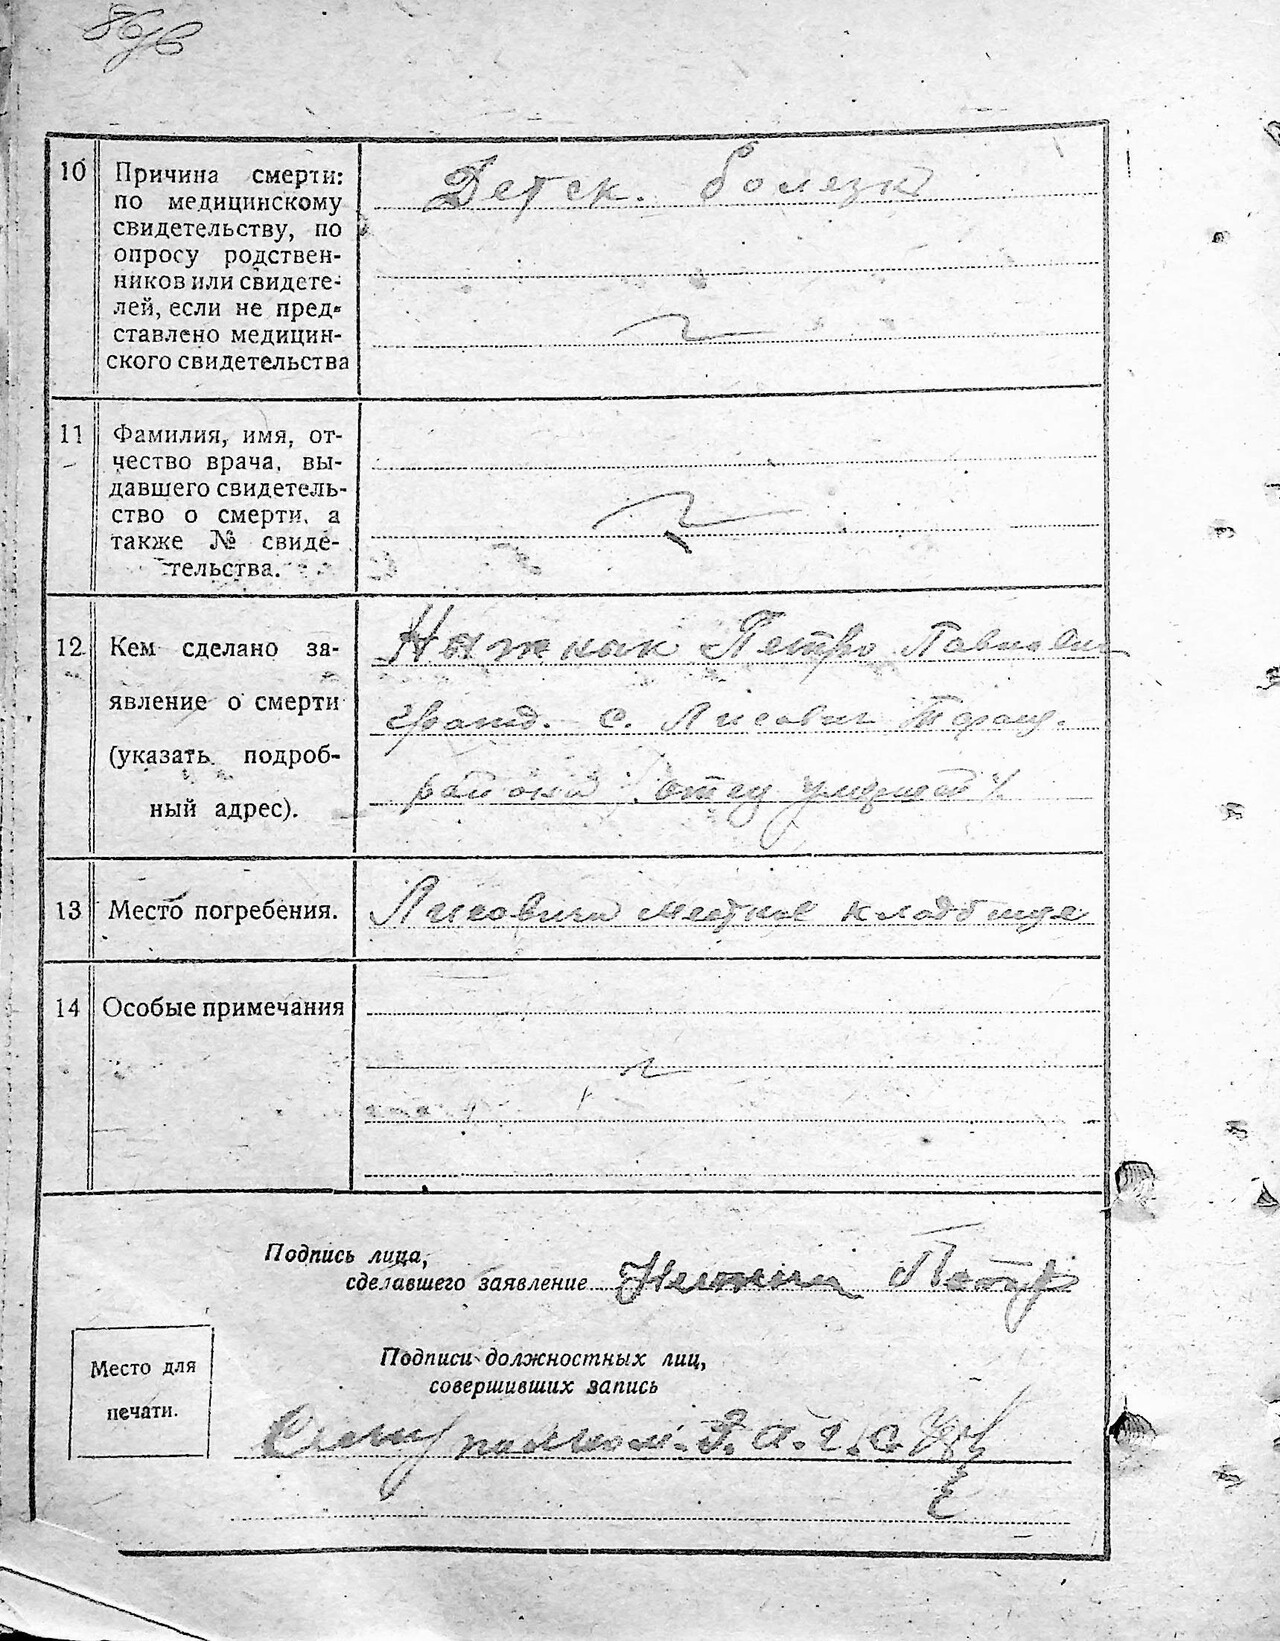 10 Причина смерти:
по медицинскому
свидетельству, по
опросу родствен-
ников или свидете-
лей, если не пред-
ставлено медицин-
ского свидетельства
Детск. болезн
11 Фамилия, имя, от-
чество врача, вы-
давшего свидетель-
ство о смерти, а
также № свиде-
тельства.
12 Кем сделано за-
явление о смерти
(указать подроб-
ный адрес).
Петро Павлович
гражд. с. Лисович Таращ.
района
13 Место погребения.
Лисовичи местное кладбище
14 Особые примечания
Подпись лица,
сделавшего заявление Петр
Подписи должностных лиц,
совершивших запись
Место для
печати.